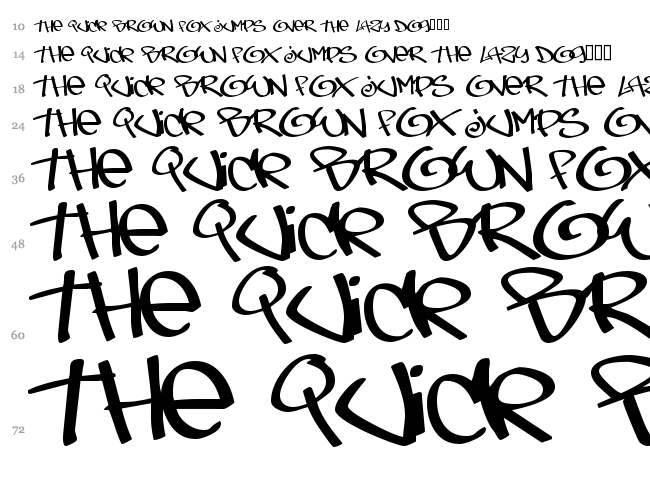 10 THE QUICK BROWN FOX JUMPS OVER THE LAZY DOG
14 THE QUICK BROWN FOX JUMPS OVER THE LAZY DOG
18 THE QUICK BROWN FOX JUMPS OVER THE LA
24 THE QUICK BROWN FOX JUMPS OV
36 THE QUICK BROWN FOX
48 THE QUICK BROW
60 THE QUICK BR
72 THE QUICK B